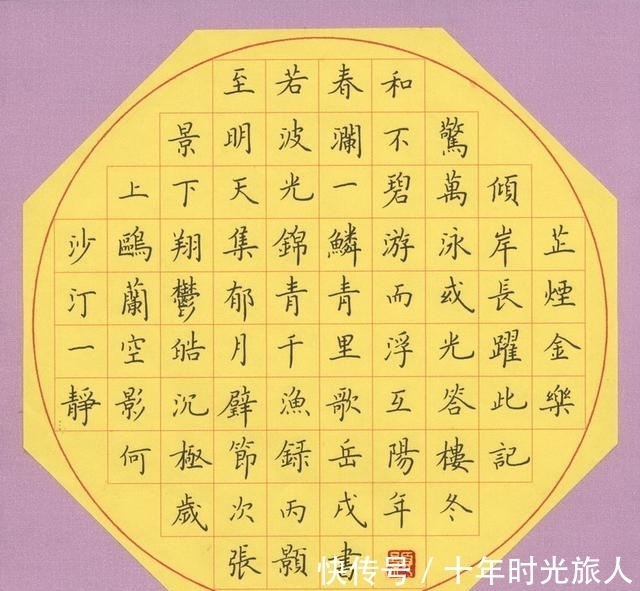 至若春和
景明波瀾不驚
上下天光一碧萬傾
沙鷗翔集錦鱗游泳岸芷
汀蘭鬱郁青青而或長煙
一空皓月千里浮光躍金
靜影沉璧漁歌互答此樂
何極節錄岳陽樓記
歲次丙戌年冬
張顥書
快传号／十年时光旅人